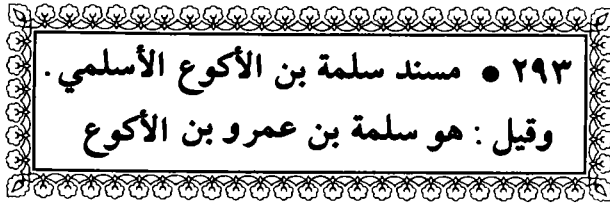 ٢٩٣ • مسند سلمة بن الأكوع الأسلمي .
وقيل : هو سلمة بن عمرو بن الأكوع